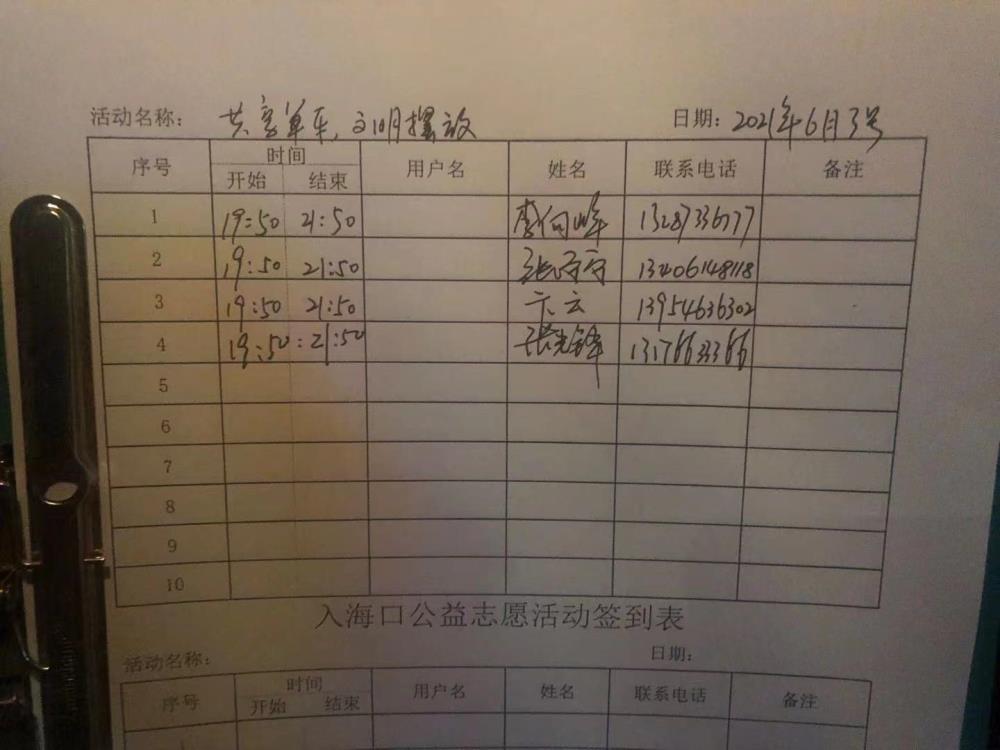 活动名称: 共享单车,文明摆放 日期: 2021年6月3号
序号 时间 用户名 姓名 联系电话 备注
开始 结束
1 19:50 21:50 李向峰 13287336777
2 19:50 21:50 张守守 13406148118
3 19:50 21:50 卞云 13954636302
4 19:50 : 21:50 张光锋 13176633366
5
6
7
8
9
10
入海口公益志愿活动签到表
活动名称: 日期:
序号 时间 用户名 姓名 联系电话 备注
开始 结束
1